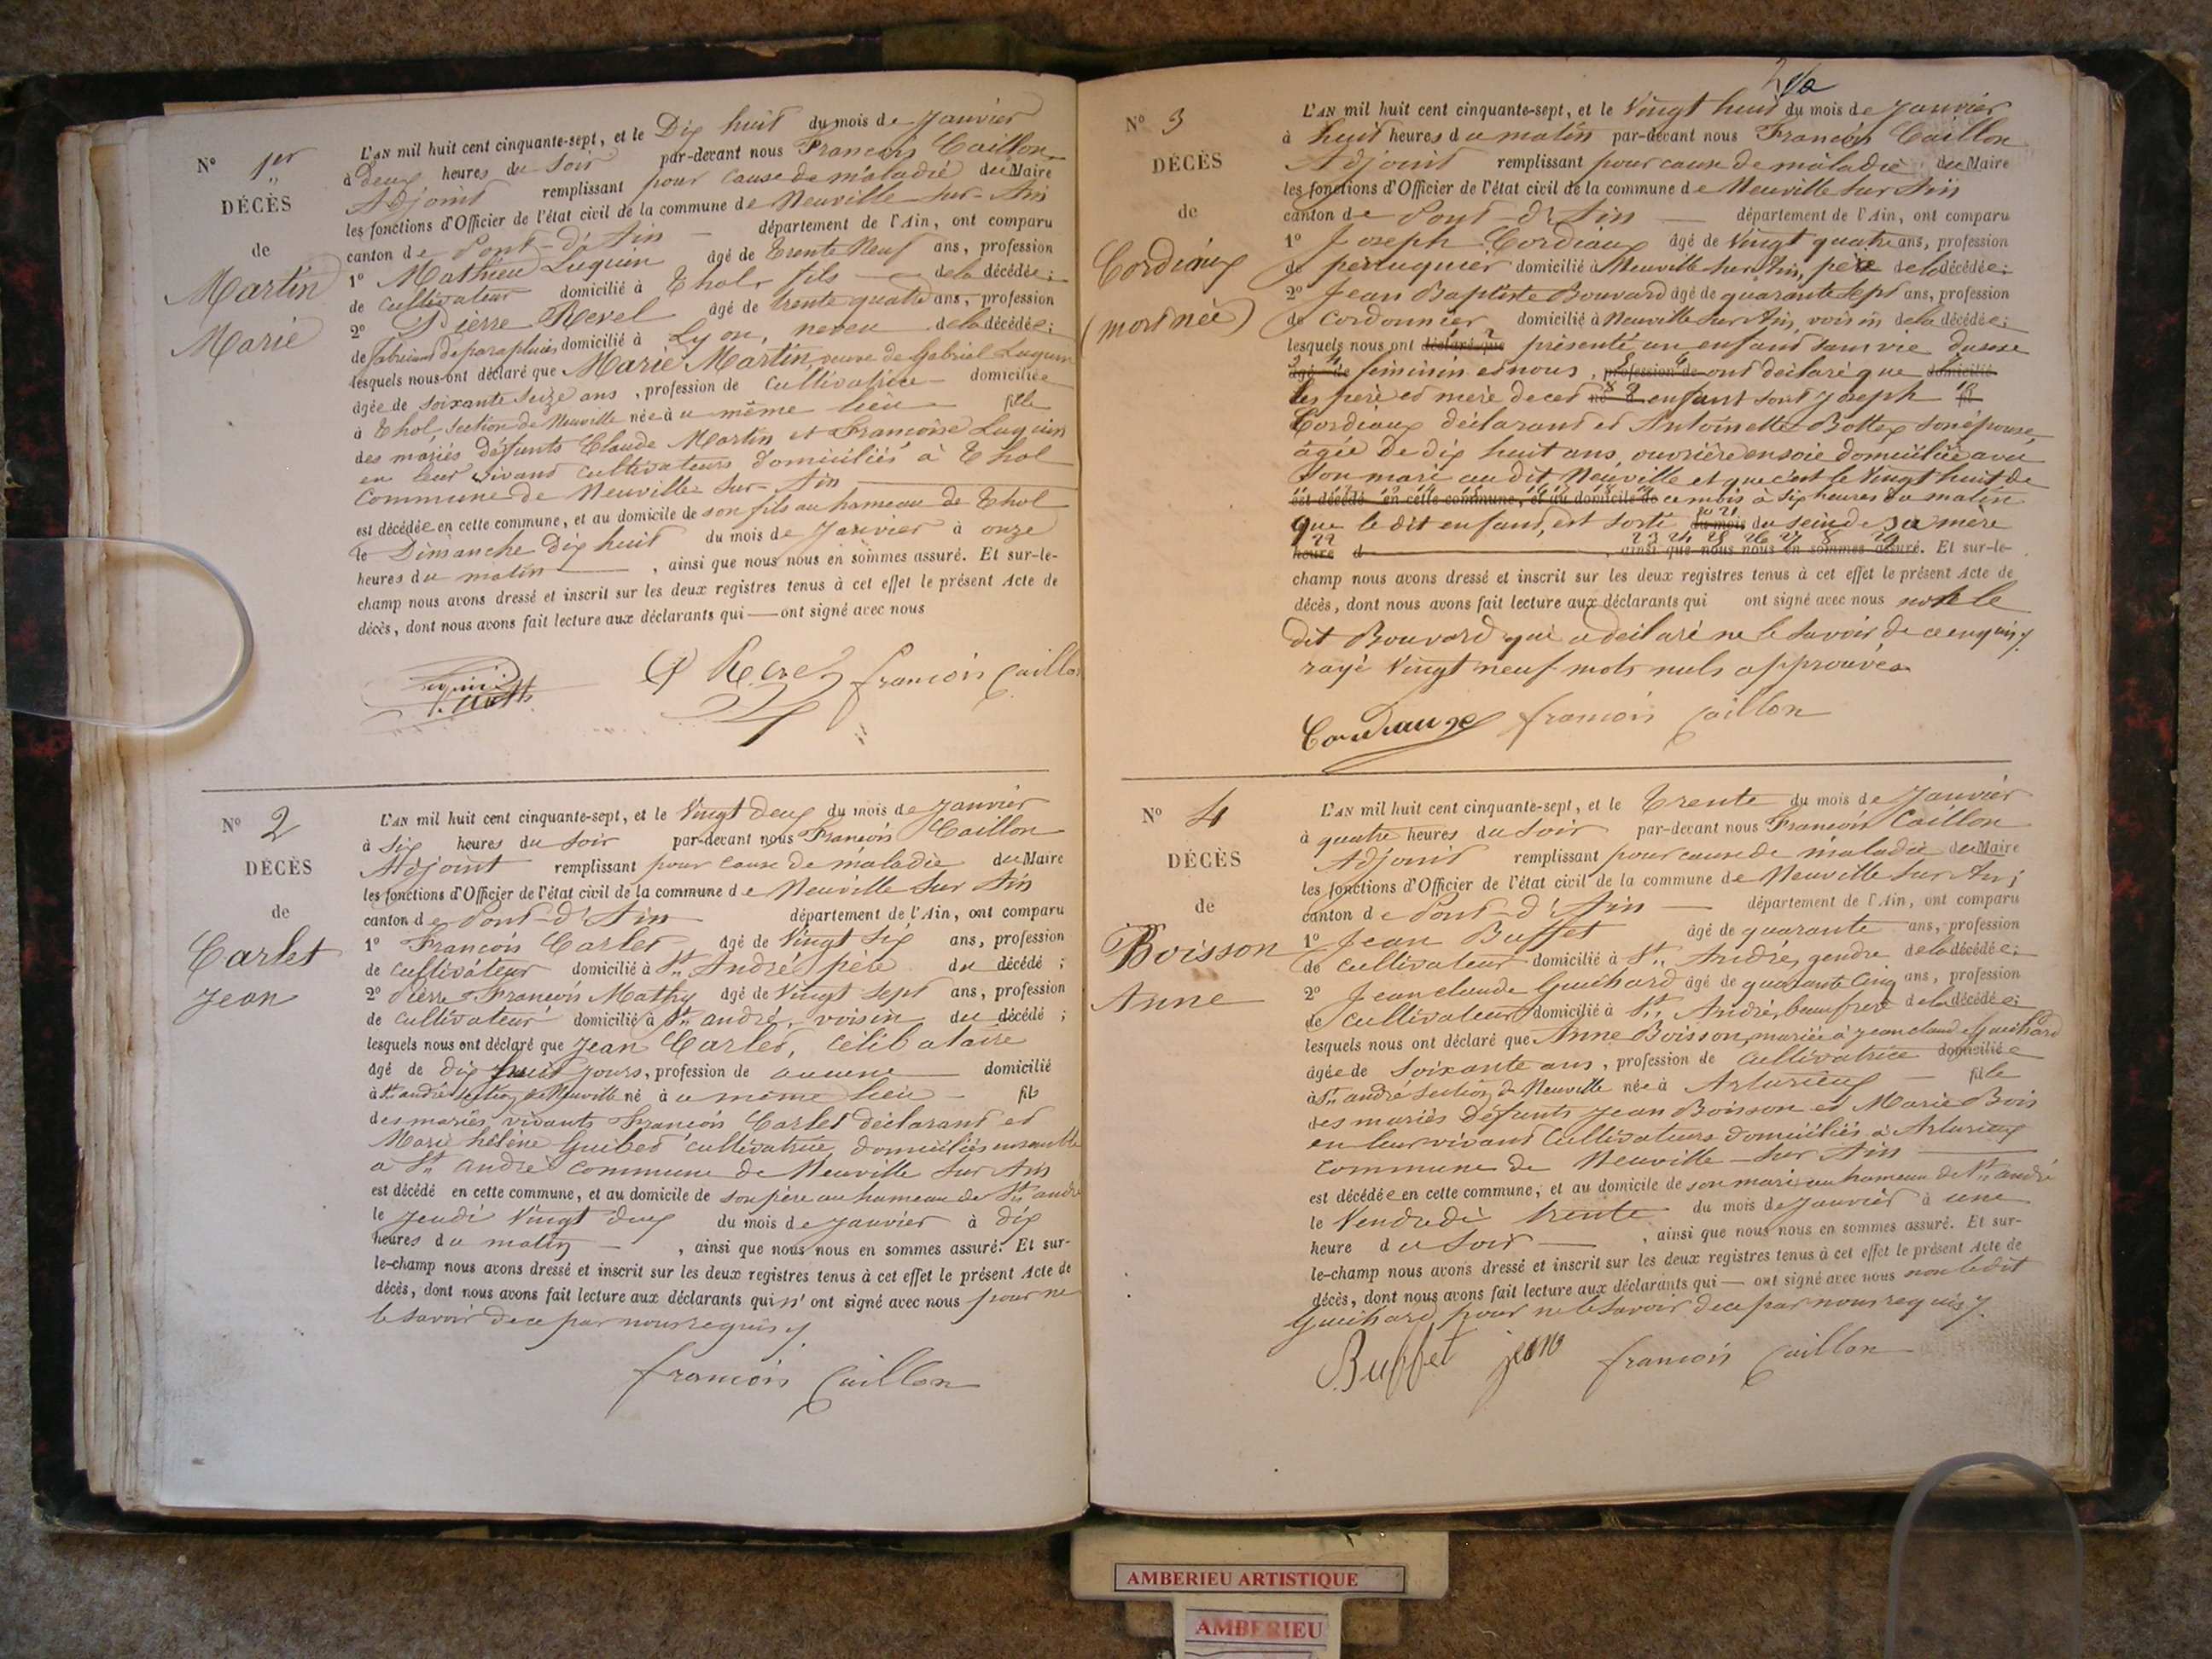 N° 1er
DÉCÈS
de
Martin
Marie
L'AN mil huit cent cinquante-sept, et le Dix huit du mois de Janvier
à Deux heures du Soir par-devant nous François Caillon
Adjoint remplissant pour cause de maladie du Maire
les fonctions d'Officier de l'état civil de la commune de Neuville-sur-Ain
canton de Pont-d'Ain département de l'Ain, ont comparu
1° Mathieu Luquin âgé de Trente Neuf ans, profession
de Cultivateur domicilié à Thol, fils de la décédée;
2° Pierre Revel âgé de trente quatre ans, profession
de fabricant de parapluies domicilié à Lyon, neveu de la décédée;
lesquels nous ont déclaré que Marie Martin, veuve de Gabriel Luquin
âgée de soixante seize ans, profession de Cultivatrice domiciliée
à Thol, Section de Neuville née à u même lieu fille
des mariés défunts Claude Martin et Françoise Luquin
en leur vivant cultivateurs domiciliés à Thol
Commune de Neuville sur-Ain
est décédée en cette commune, et au domicile de son fils au hameau de Thol
le Dimanche Dix huit du mois de Janvier à onze
heures du matin, ainsi que nous nous en sommes assuré. Et sur-le-
champ nous avons dressé et inscrit sur les deux registres tenus à cet effet le présent Acte de
décès, dont nous avons fait lecture aux déclarants qui — ont signé avec nous
P Revel françois Caillon
N° 2
DÉCÈS
de
Carlet
Jean
L'AN mil huit cent cinquante-sept, et le Vingt Deux du mois de Janvier
à Six heures du Soir par-devant nous François Caillon
Adjoint remplissant pour cause de maladie du Maire
les fonctions d'Officier de l'état civil de la commune de Neuville Sur Ain
canton de Pont-d'Ain département de l'Ain, ont comparu
1° François Carlet âgé de Vingt Six ans, profession
de Cultivateur domicilié à St André, père du décédé;
2° Pierre François Mathy âgé de Vingt Sept ans, profession
de Cultivateur domicilié à St andré, voisin du décédé;
lesquels nous ont déclaré que Jean Carlet, Célibataire
âgé de dix huit jours, profession de aucune domicilié
à St andré section de Neuville né à u même lieu fils
des mariés vivants François Carlet déclarant et
Marie hélène Guibet cultivatrice, domiciliés ensemble
à St andré Commune de Neuville Sur Ain
est décédé en cette commune, et au domicile de son père au hameau de St andré
le Jeudi Vingt deux du mois de Janvier à dix
heures du matin, ainsi que nous nous en sommes assuré. Et sur-
le-champ nous avons dressé et inscrit sur les deux registres tenus à cet effet le présent Acte de
décès, dont nous avons fait lecture aux déclarants qui n'ont signé avec nous pour ne
le savoir de ce par nous requis
françois Caillon
N° 3
DÉCÈS
de
Cordiaux
(mort née)
L'AN mil huit cent cinquante-sept, et le Vingt huit du mois de Janvier
à huit heures du matin par-devant nous François Caillon
Adjoint remplissant pour cause de maladie du Maire
les fonctions d'Officier de l'état civil de la commune de Neuville Sur Ain
canton de Pont-d'Ain département de l'Ain, ont comparu
1° Joseph Cordiaux âgé de Vingt quatre ans, profession
de perruquier domicilié à Neuville Sur Ain, père de la décédée;
2° Jean Baptiste Bouvard âgé de quarante Sept ans, profession
de Cordonnier domicilié à Neuville Sur Ain, voisin de la décédée;
lesquels nous ont déclaré que présenté un enfant sans vie du sexe
âgé de féminin et nous, profession de ont déclaré que domicilié
les père et mère de cet né à enfant sont Joseph fil
Cordiaux déclarant et Antoinette Bottex son épouse,
âgée de dix huit ans, ouvrière en soie domiciliée avec
son mari au dit Neuville et que c'est le Vingt huit de
est décédé en cette commune, et au domicile de ce mois à Six heures du matin
que le dit enfant, est sorti du mois du sein de sa mère
heure d ainsi que nous nous en sommes assuré. Et sur-le-
champ nous avons dressé et inscrit sur les deux registres tenus à cet effet le présent Acte de
décès, dont nous avons fait lecture aux déclarants qui ont signé avec nous non le
dit Bouvard qui a déclaré ne le savoir de ce enquis
rayé Vingt neuf mots nuls approuvés
Cordiaux françois Caillon
N° 4
DÉCÈS
de
Boisson
Anne
L'AN mil huit cent cinquante-sept, et le Trente du mois de Janvier
à quatre heures du Soir par-devant nous François Caillon
Adjoint remplissant pour cause de maladie du Maire
les fonctions d'Officier de l'état civil de la commune de Neuville Sur Ain
canton de Pont-d'Ain département de l'Ain, ont comparu
1° Jean Buffet âgé de quarante ans, profession
de Cultivateur domicilié à St André, gendre de la décédée;
2° Jean claude Guichard âgé de quarante Cinq ans, profession
de Cultivateur domicilié à St André, beau frère de la décédée;
lesquels nous ont déclaré que Anne Boisson, mariée à Jean claude Guichard
âgée de Soixante ans, profession de Cultivatrice domiciliée
à St andré Section de Neuville née à Arturieux fille
des mariés Défunts Jean Boisson et Marie Bois
en leur vivant Cultivateurs domiciliés à Arturieux
Commune de Neuville-Sur Ain
est décédée en cette commune, et au domicile de son mari au hameau de St andré
le Vendredi trente du mois de Janvier à une
heure du Soir, ainsi que nous nous en sommes assuré. Et sur-
le-champ nous avons dressé et inscrit sur les deux registres tenus à cet effet le présent Acte de
décès, dont nous avons fait lecture aux déclarants qui — ont signé avec nous non le dit
Guichard pour ne le savoir de ce par nous requis
Buffet jean françois Caillon
AMBERIEU ARTISTIQUE
AMBERIEU